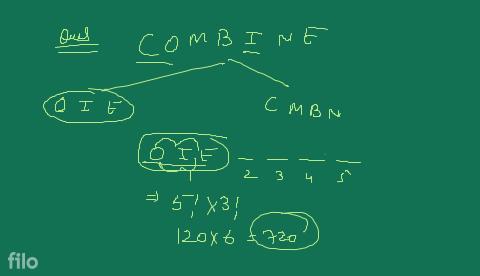 Ques COMBINE
OIE CMBN
OIE _ _ _ _
2 3 4 5
⇒ 5! × 3!
120 × 6 = 720
filo